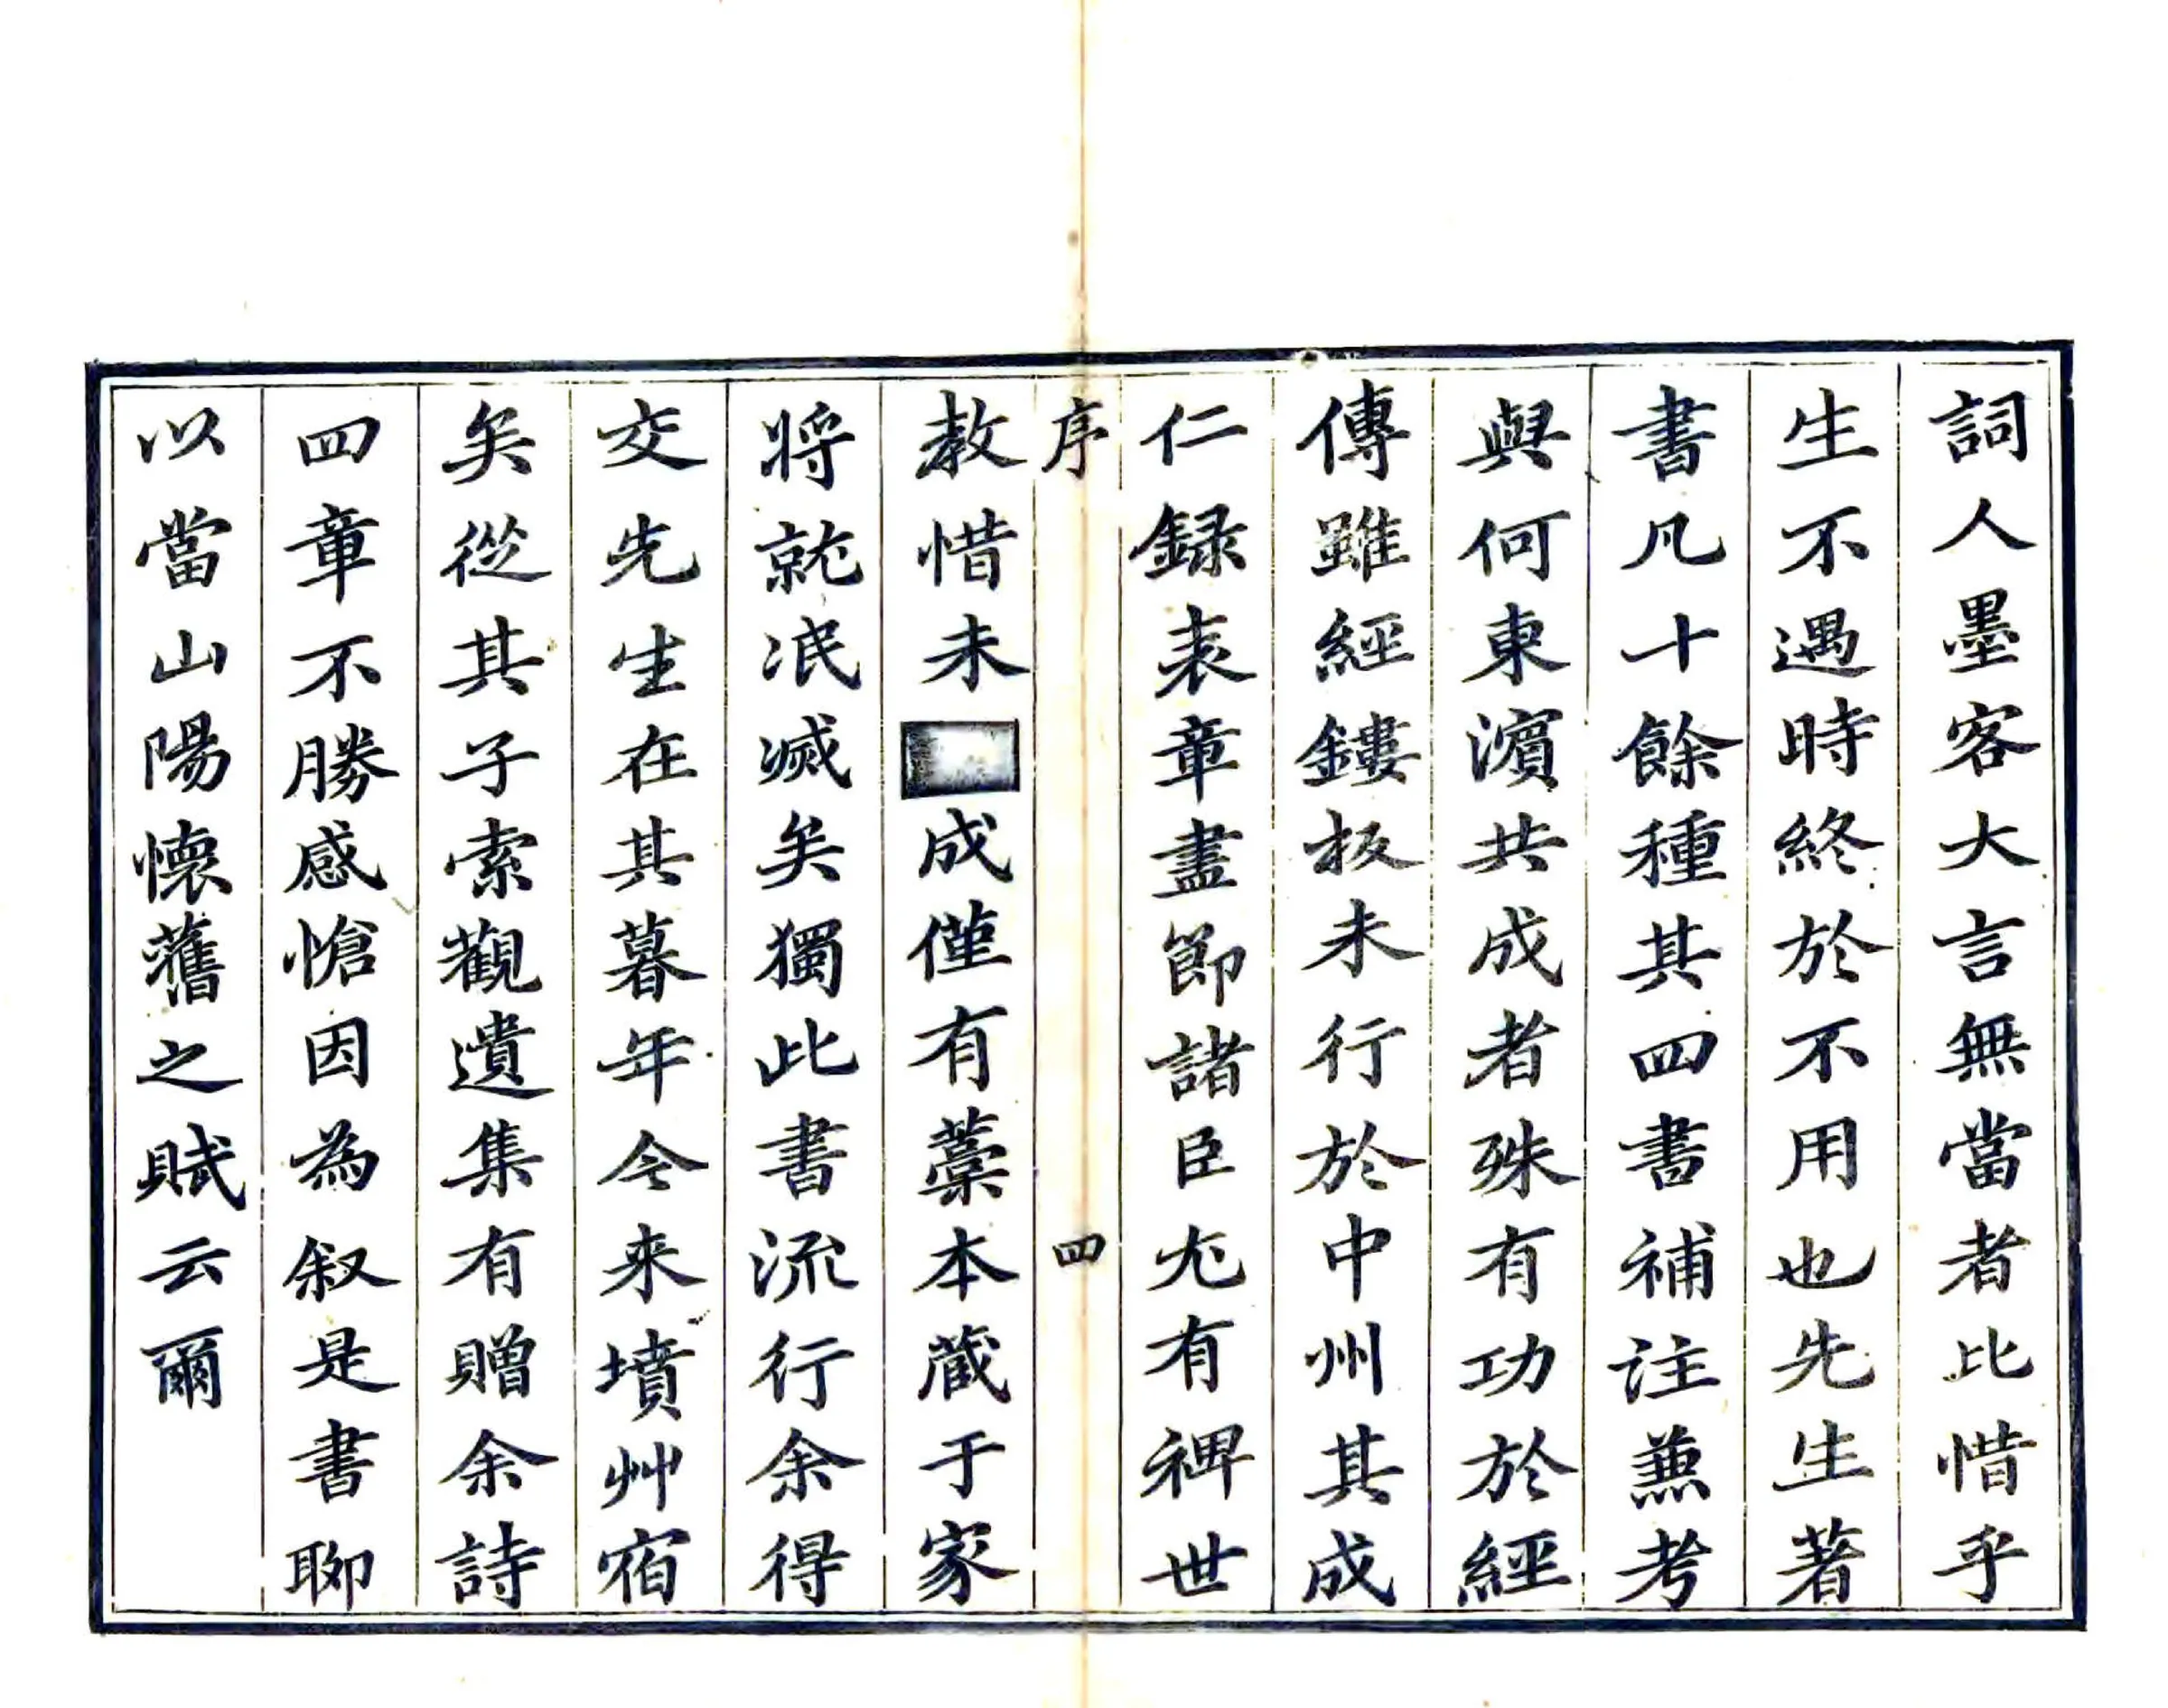 詞人墨客大言無當者比惜乎
生不遇時終於不用也先生著
書凡十餘種其四書補注蒹考
與何東濵共成者殊有功於經
傳雖經鏤板未行於中州其成
仁録表章盡節諸臣尤有裨世
序 四
教惜未成僅有藁本蔵于家
将就泯滅矣獨此書流行余得
交先生在其暮年今来墳艸宿
矣從其子索觀遺集有贈余詩
四章不勝感愴因為叙是書聊
以當山陽懷舊之賦云爾